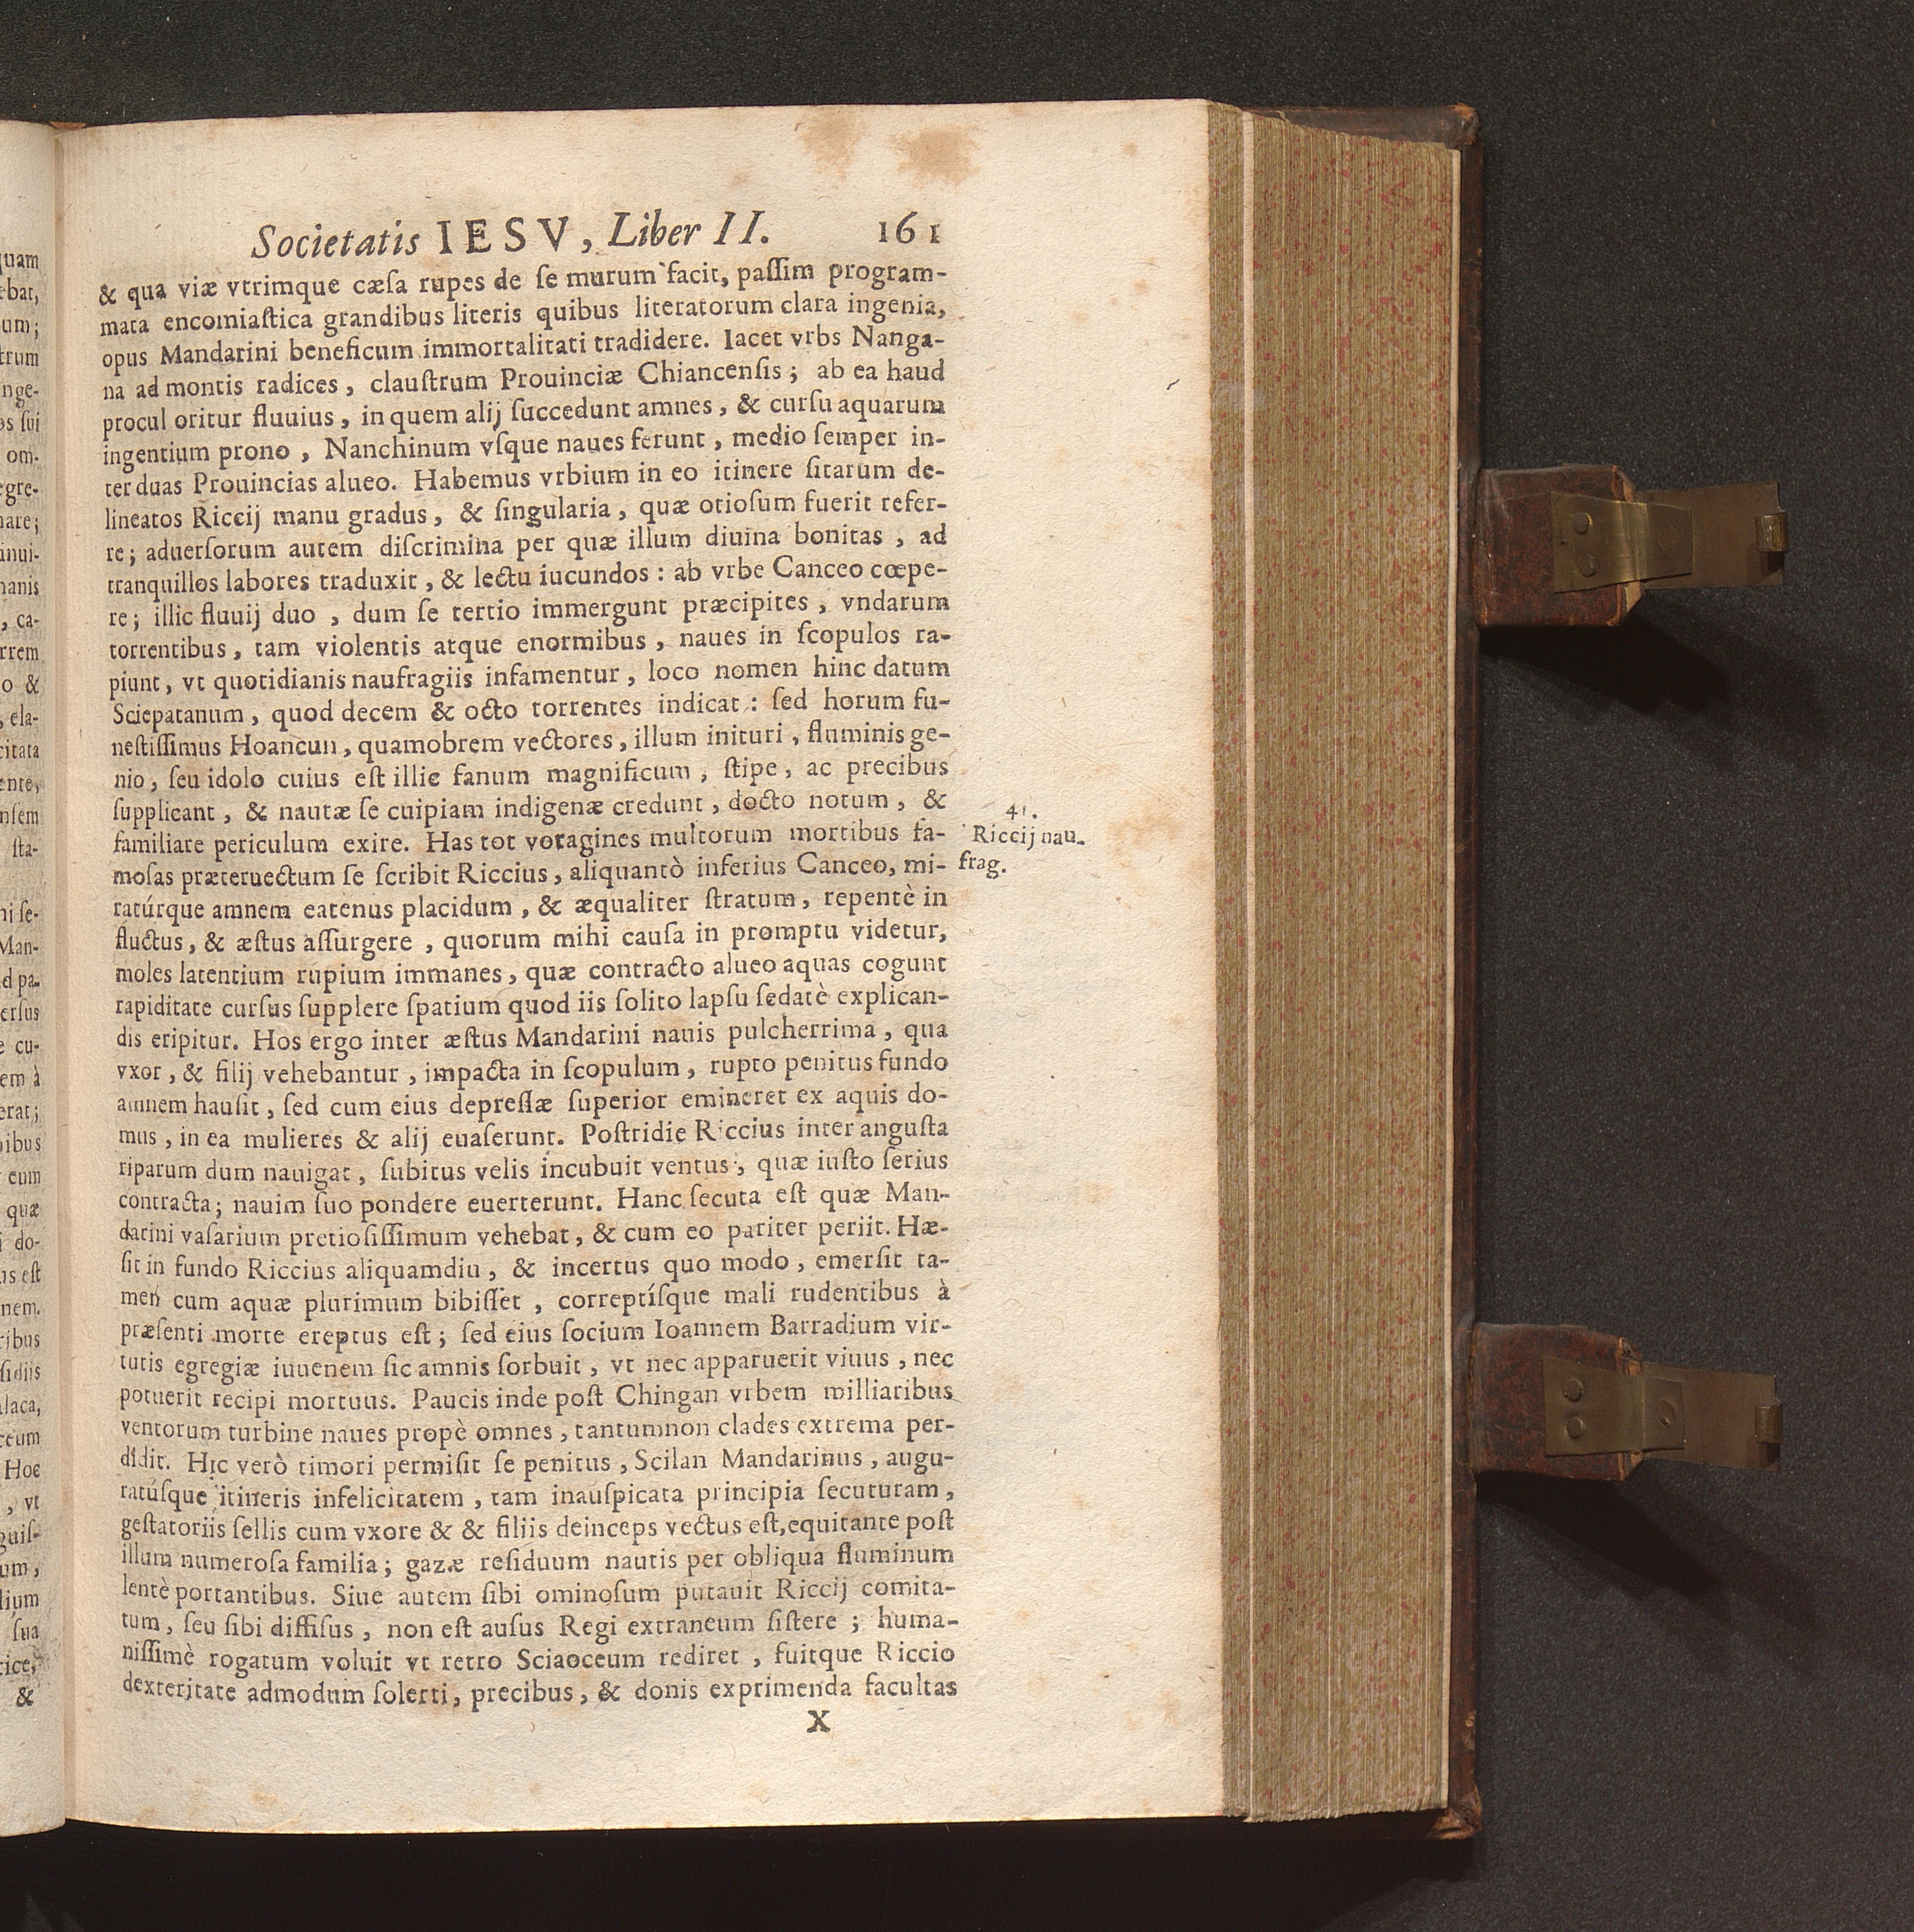 Societatis IESV, Liber II. 161
& qua viæ vtrimque cæsa rupes de se murum facit, passim program-
mata encomiastica grandibus literis quibus literatorum clara ingenia,
opus Mandarini beneficum immortalitati tradidere. Iacet vrbs Nanga-
na ad montis radices, claustrum Prouinciæ Chiancensis; ab ea haud
procul oritur fluuius, in quem alij succedunt amnes, & cursu aquarum
ingentium prono, Nanchinum vsque naues ferunt, medio semper in-
ter duas Prouincias alueo. Habemus vrbium in eo itinere sitarum de-
lineatos Riccij manu gradus, & singularia, quæ otiosum fuerit refer-
re; aduersorum autem discrimina per quæ illum diuina bonitas, ad
tranquillos labores traduxit, & lectu iucundos: ab vrbe Canceo cœpe-
re; illic fluuij duo, dum se tertio immergunt præcipites, vndarum
torrentibus, tam violentis atque enormibus, naues in scopulos ra-
piunt, vt quotidianis naufragiis infamentur, loco nomen hinc datum
Sciepatanum, quod decem & octo torrentes indicat: sed horum fu-
nestissimus Hoancun, quamobrem vectores, illum inituri, fluminis ge-
nio, seu idolo cuius est illic fanum magnificum, stipe, ac precibus
supplicant, & nautæ se cuipiam indigenæ credunt, docto notum, &
familiare periculum exire. Has tot voragines multorum mortibus fa-
mosas præteruectum se scribit Riccius, aliquantò inferius Canceo, mi-
ratúrque amnem eatenus placidum, & æqualiter stratum, repentè in
fluctus, & æstus assurgere, quorum mihi causa in promptu videtur,
moles latentium rupium immanes, quæ contracto alueo aquas cogunt
rapiditate cursus supplere spatium quod iis solito lapsu sedatè explican-
dis eripitur. Hos ergo inter æstus Mandarini nauis pulcherrima, qua
vxor, & filij vehebantur, impacta in scopulum, rupto penitus fundo
amnem hausit, sed cum eius depressæ superior emineret ex aquis do-
mus, in ea mulieres & alij euaserunt. Postridie Riccius inter angusta
riparum dum nauigat, subitus velis incubuit ventus, quæ iusto serius
contracta; nauim suo pondere euerterunt. Hanc secuta est quæ Man-
darini vasarium pretiosissimum vehebat, & cum eo pariter periit. Hæ-
sit in fundo Riccius aliquamdiu, & incertus quo modo, emersit ta-
men cum aquæ plurimum bibisset, correptísque mali rudentibus à
præsenti morte ereptus est; sed eius socium Ioannem Barradium vir-
tutis egregiæ iuuenem sic amnis sorbuit, vt nec apparuerit viuus, nec
potuerit recipi mortuus. Paucis inde post Chingan vrbem milliaribus
ventorum turbine naues propè omnes, tantumnon clades extrema per-
didit. Hic verò timori permisit se penitus, Scilan Mandarinus, augu-
ratúsque itineris infelicitatem, tam inauspicata principia secuturam,
gestatoriis sellis cum vxore & & filiis deinceps vectus est, equitante post
illum numerosa familia; gazæ residuum nautis per obliqua fluminum
lentè portantibus. Siue autem sibi ominosum putauit Riccij comita-
tum, seu sibi diffisus, non est ausus Regi extraneum sistere; huma-
nissimè rogatum voluit vt retro Sciaoceum rediret, fuitque Riccio
dexteritate admodum solerti, precibus, & donis exprimenda facultas
X
41.
Riccij nau-
frag.
quam
ebat,
um;
trum
nge-
os sui
om-
egre-
nare;
inui-
manis
, ca-
rrem
o &
, ela-
citata
ente,
nsem
sta-
ni se-
Man-
d pa-
ersus
e cu-
em à
erat;
nibus
eum
quæ
i do-
us est
nem.
ribus
sidiis
laca,
ceum
Hoc
, vt
guis-
um,
lium
sua
tice,
&